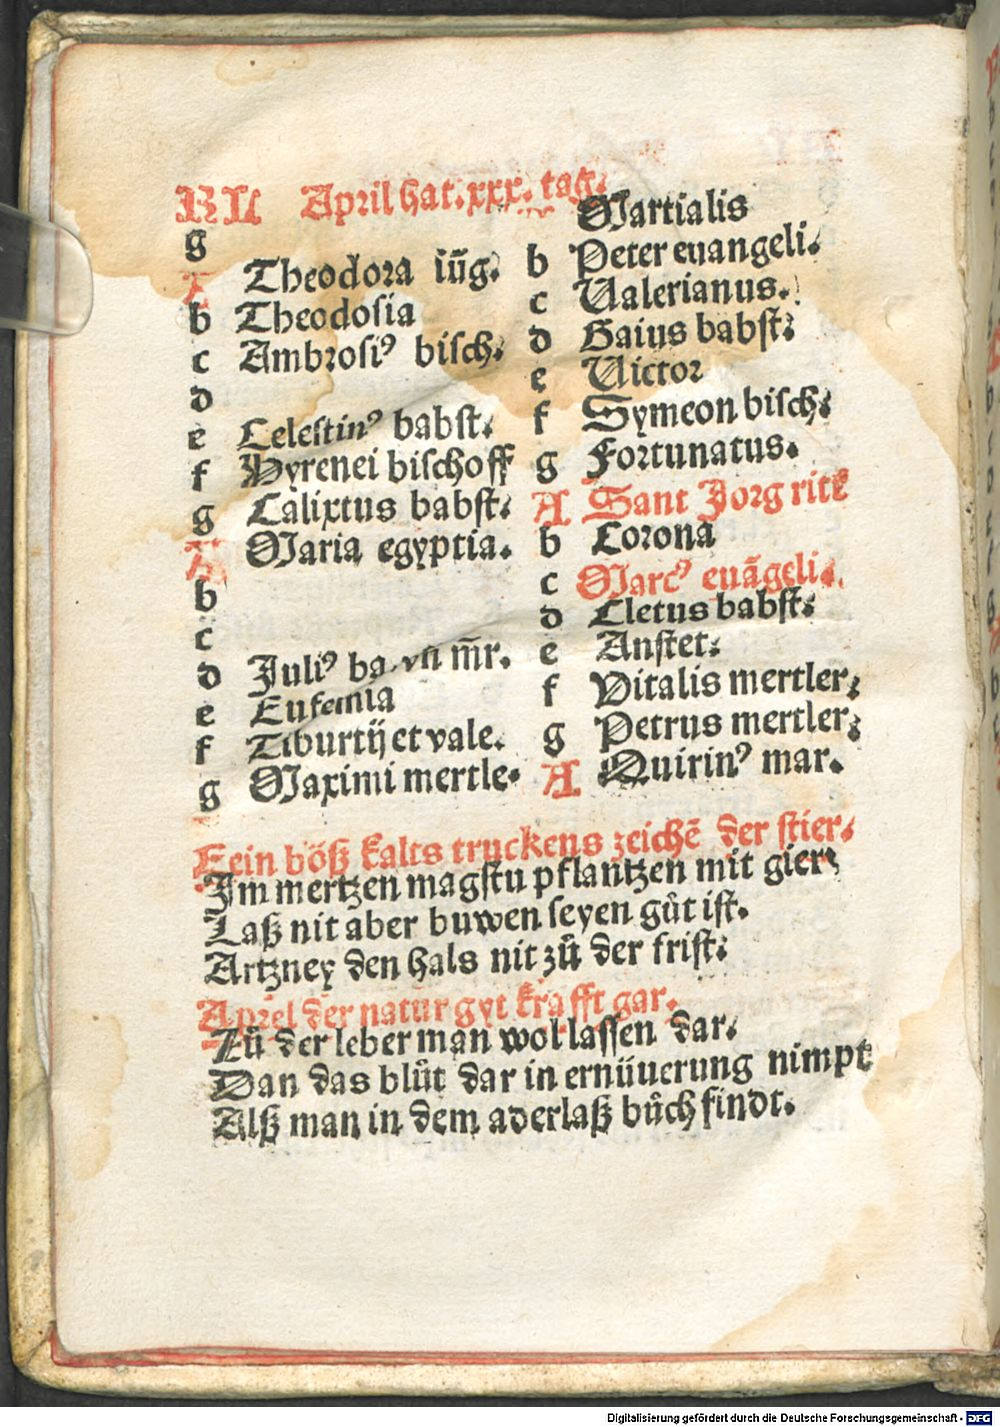 KL April hat. xxx. tag.
g
A Theodora iūg.
b Theodosia
c Ambrosiꝰ bisch.
d
e Celestinꝰ babst.
f Hyrenei bischoff
g Calixtus babst.
A Maria egyptia.
b
c
d Juliꝰ ba. vn m̄r.
e Eufemia
f Tiburtij et vale.
g Maximi mertle.
Martialis
b Peter euangeli.
c Ualerianus.
d Gaius babst.
e Uictor
f Symeon bisch.
g Fortunatus.
A Sant Jorg rite
b Corona
c Marcꝰ euāgeli.
d Cletus babst.
e Anstet.
f Vitalis mertler.
g Petrus mertler.
A Quirinꝰ mar.
Eein böß kalts truckens zeichē der stier.
Im mertzen magstu pflantzen mit gier
Laß nit aber buwen seyen gůt ist.
Artzney den hals nit zů der frist.
Aprel der natur gyt krafft gar.
Zů der leber man wol lassen dar.
Dan das blůt dar in ernüuerung nimpt
Alß man in dem aderlaß bůch findt.
Digitalisierung gefördert durch die Deutsche Forschungsgemeinschaft - DFG